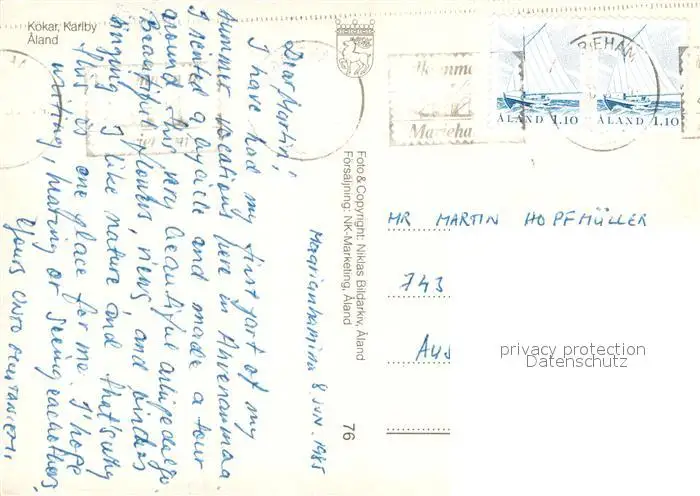 Kökar, Karlby
Åland
Maarianhamina 8 JUN. 1985
Dear Martin!
I have had my first part of my
summer vacations here in Ahvenanmaa.
I rented a bycicle and made a tour
around this very beautiful archipelago.
Beautiful flowers, views and birds
singing. I like nature and that's why
this is one place for me. I hope
writing, hearing or seeing each other.
Yours
Foto & Copyright: Niklas Bildarkiv, Åland
Försäljning: NK-Marketing, Åland
76
ÅLAND 1.10
ÅLAND 1.10
Marieha
RIEHAM
MR MARTIN HOPFMÜLLER
743
AUS
privacy protection
Datenschutz